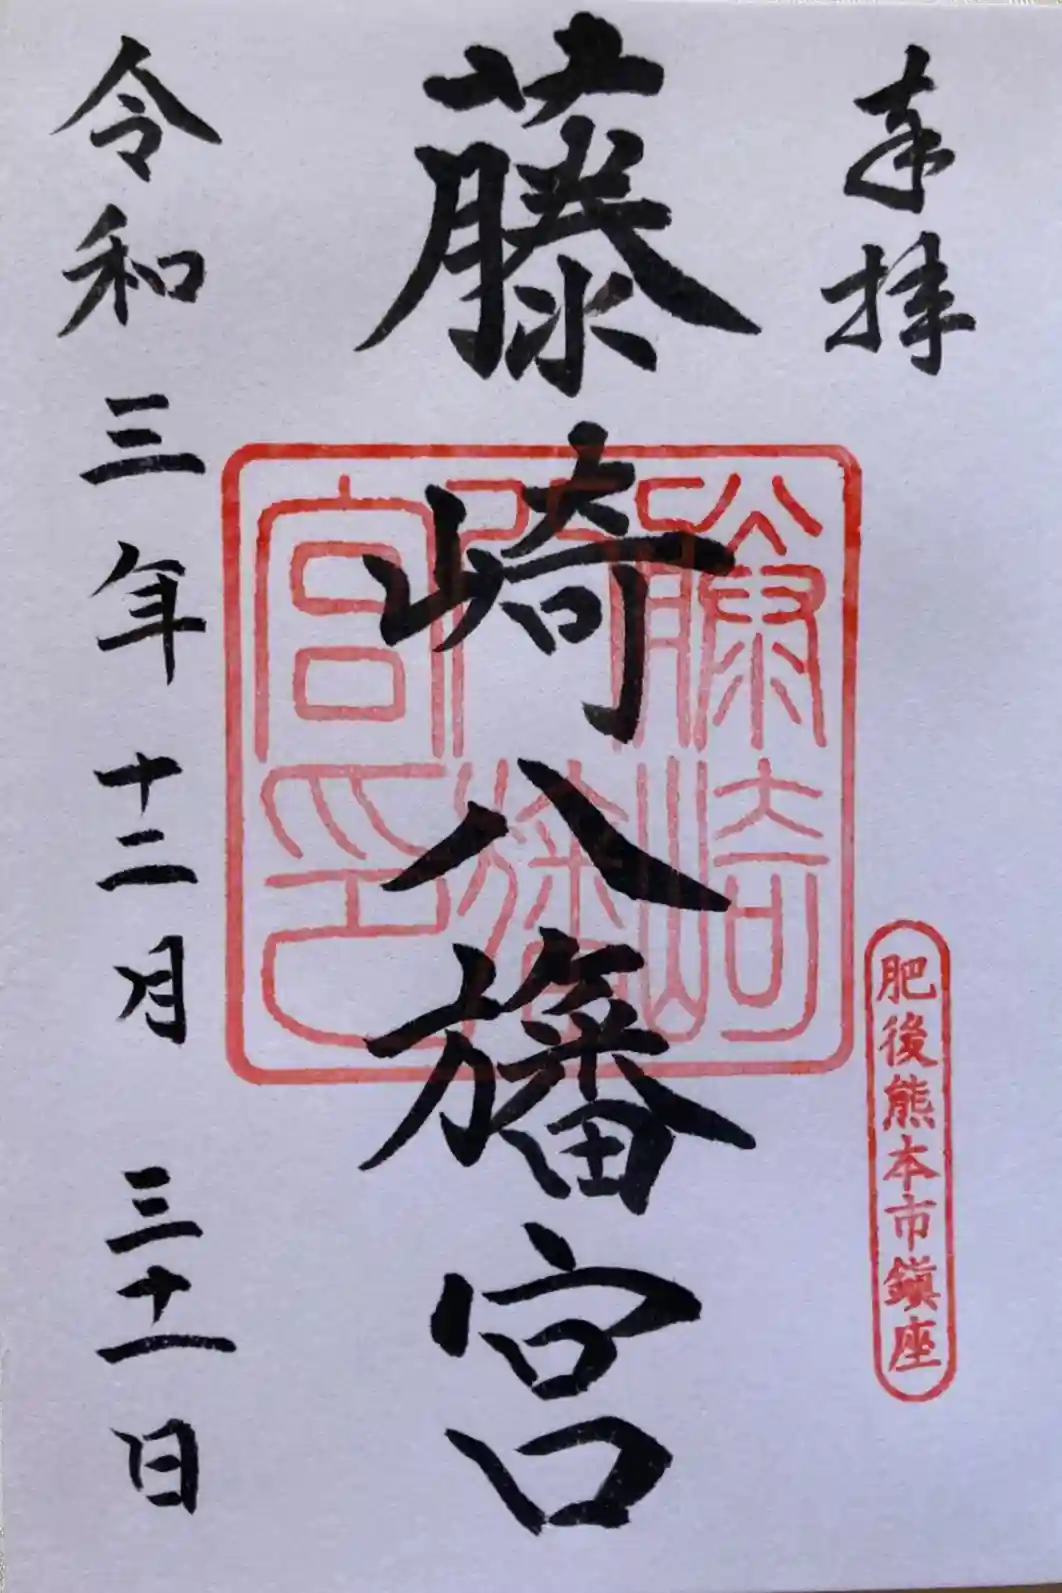 奉拝
肥後熊本市鎮座
藤崎八旛宮
藤崎八旛宮印
令和三年十二月三十一日